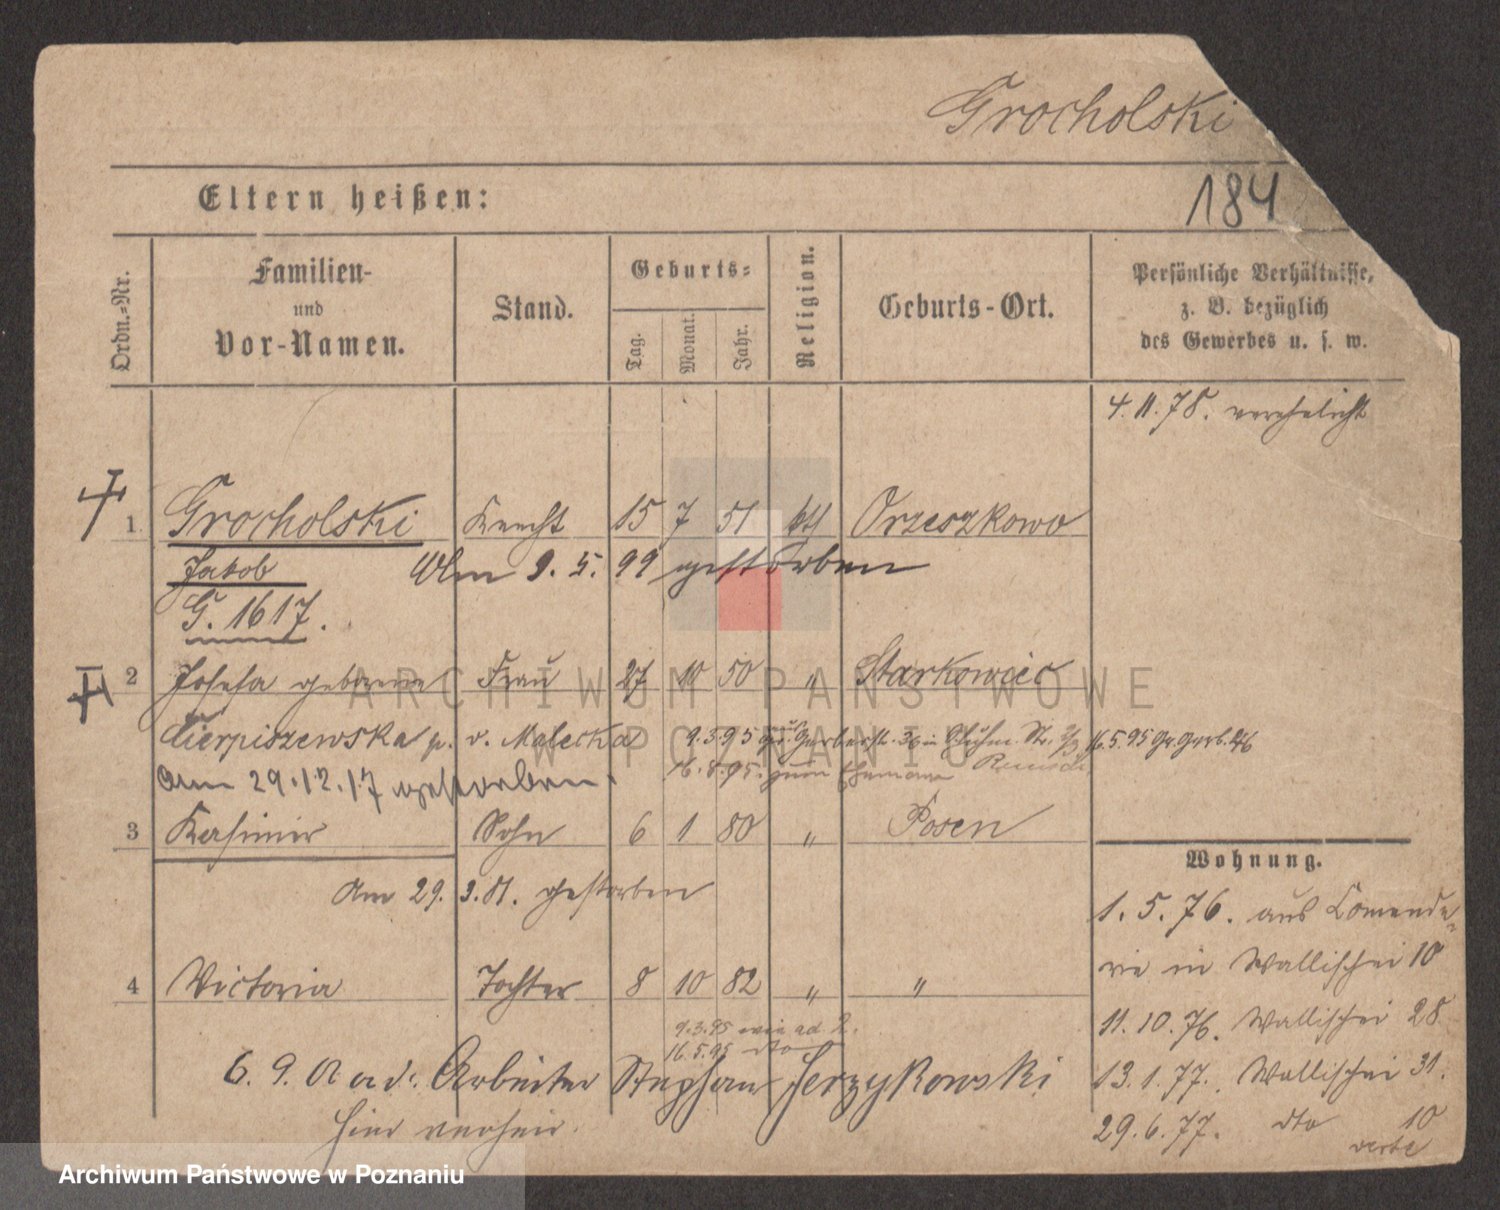 Grocholski
184
Eltern heißen:
Ordn.-Nr.
Familien-
und
Vor-Namen.
Stand.
Geburts-
Tag.
Monat.
Jahr.
Religion.
Geburts-Ort.
Persönliche Verhältnisse,
z. B. bezüglich
des Gewerbes u. s. w.
4.11.78. verehelicht
1 Grocholski Knecht 15 7 51 kth Orzeszkowo
Jakob
9. 5. 99 gestorben
G. 1617.
2 Josefa geborene Frau 27 10 50 " Starkowiec
Cierpiszewska p. v. Malecka
9.3.95 Gr. Gerberstr. 36
16.5.95 Gr. Gerb. 46
16.5.95. zum Ehemann
Am 29.12.17 gestorben.
3 Kasimir Sohn 6 1 80 " Posen
Am 29. 3. 81. gestorben
4 Victoria Tochter 8 10 82 " "
9.3.95 wie ad 2.
16.5.95 dto
6. 9. Arbeiter Stephan Jerzykowski
hier verheir.
Wohnung.
1. 5. 76. aus Comende-
rie in Wallischei 10
11. 10. 76. Wallischei 28
13. 1. 77. Wallischei 31.
29. 6. 77. dto 10
verte
ARCHIWUM PAŃSTWOWE
W POZNANIU
Archiwum Państwowe w Poznaniu